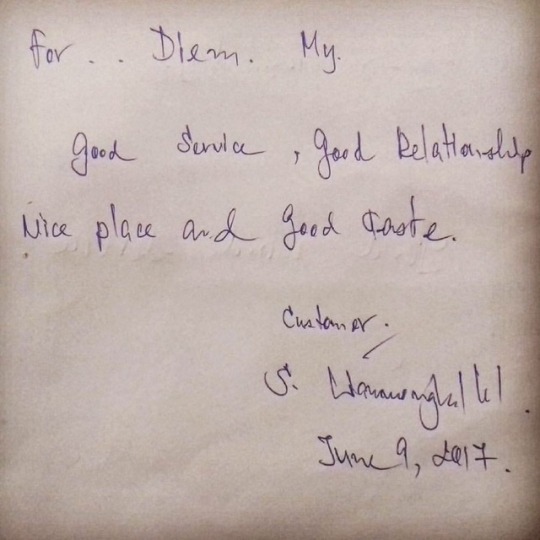 For.. Diem. My.
good Service, good Relationship
Nice place and good taste.
Customer.
S.
June 9, 2017.